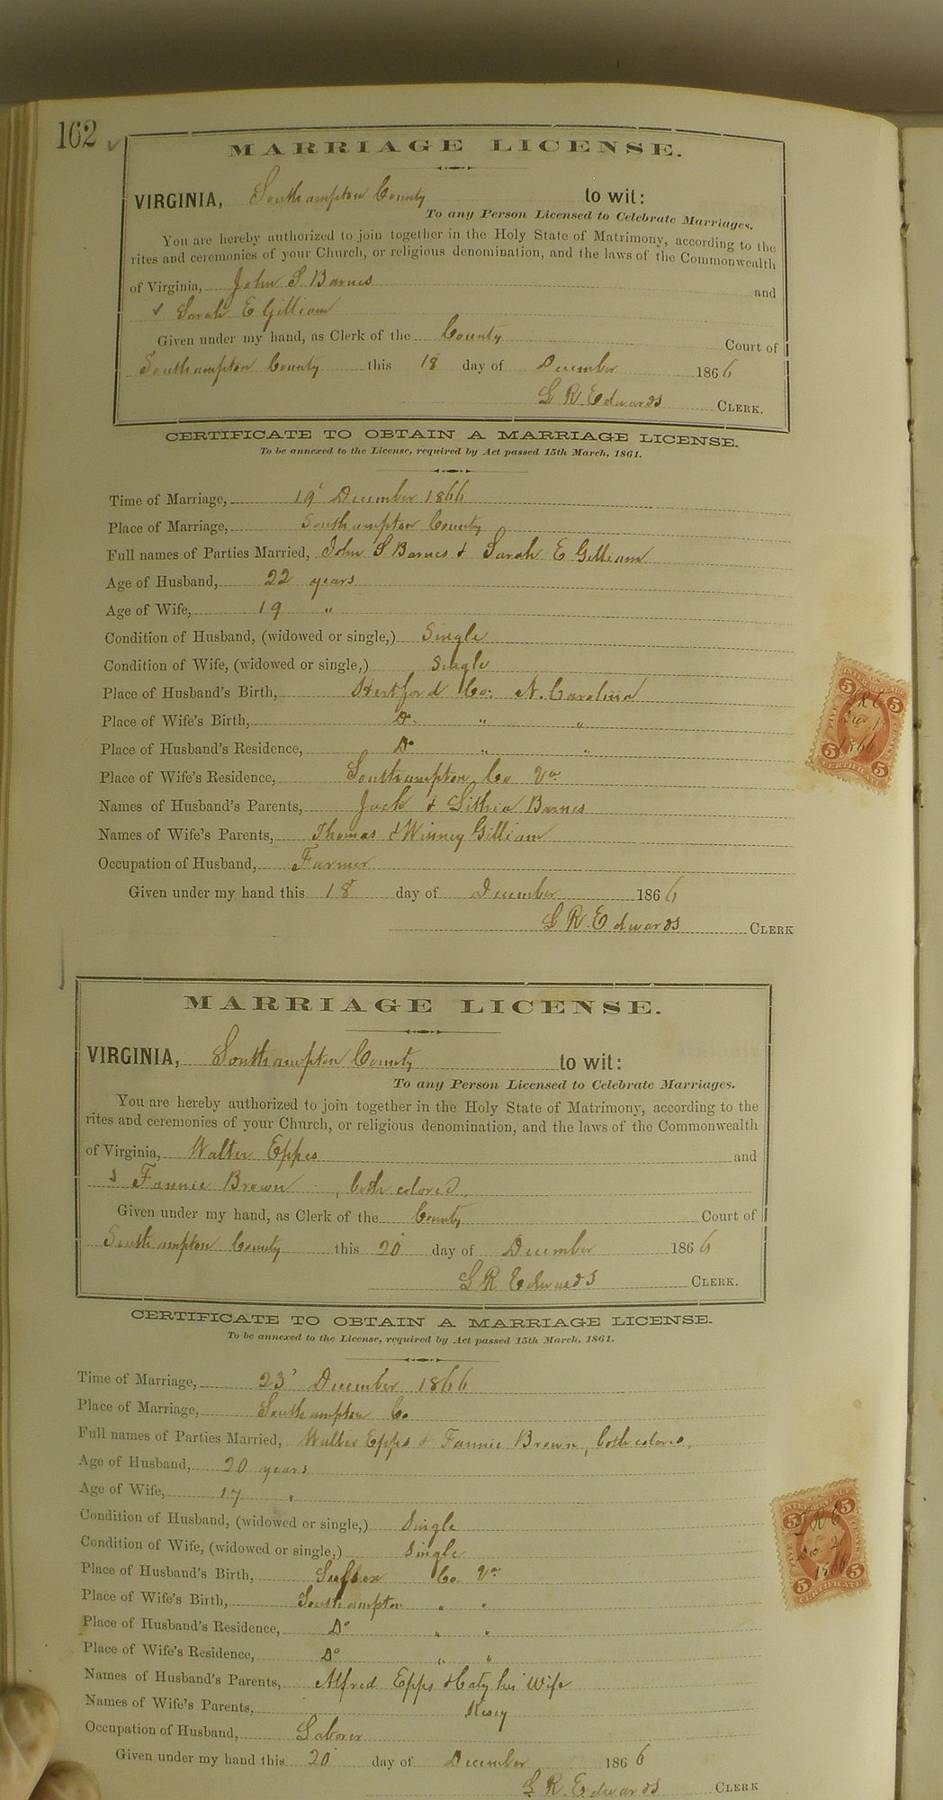 162
MARRIAGE LICENSE.
VIRGINIA, Southampton County to wit:
To any Person Licensed to Celebrate Marriages.
You are hereby authorized to join together in the Holy State of Matrimony, according to the
rites and ceremonies of your Church, or religious denomination, and the laws of the Commonwealth
of Virginia, John S. Barnes and
& Sarah E Gilliam
Given under my hand, as Clerk of the County Court of
Southampton County this 18 day of December 1866
L R. Edwards CLERK.
CERTIFICATE TO OBTAIN A MARRIAGE LICENSE.
To be annexed to the License, required by Act passed 15th March, 1861.
Time of Marriage, 19' December 1866
Place of Marriage, Southampton County
Full names of Parties Married, John S Barnes & Sarah E Gilliam
Age of Husband, 22 years
Age of Wife, 19 "
Condition of Husband, (widowed or single,) Single
Condition of Wife, (widowed or single,) Single
Place of Husband's Birth, Hertford Co: N. Carolina
Place of Wife's Birth, Do " "
Place of Husband's Residence, Do " "
Place of Wife's Residence, Southampton Co Va
Names of Husband's Parents, Jack & Barnes
Names of Wife's Parents, Thomas & Winney Gilliam
Occupation of Husband, Farmer
Given under my hand this 18 day of December 1866
L R. Edwards CLERK
5 5
1866
5 5
CERTIFICATE
MARRIAGE LICENSE.
VIRGINIA, Southampton County to wit:
To any Person Licensed to Celebrate Marriages.
You are hereby authorized to join together in the Holy State of Matrimony, according to the
rites and ceremonies of your Church, or religious denomination, and the laws of the Commonwealth
of Virginia, Walter Epps and
& Fannie Brown, both colored.
Given under my hand, as Clerk of the County Court of
Southampton County this 20 day of December 1866
L R Edwards CLERK.
CERTIFICATE TO OBTAIN A MARRIAGE LICENSE.
To be annexed to the License, required by Act passed 15th March, 1861.
Time of Marriage, 23' December 1866
Place of Marriage, Southampton Co
Full names of Parties Married, Walter Epps & Fannie Brown, both colored.
Age of Husband, 20 years
Age of Wife, 17 "
Condition of Husband, (widowed or single,) Single
Condition of Wife, (widowed or single,) Single
Place of Husband's Birth, Sussex Co Va
Place of Wife's Birth, Southampton " "
Place of Husband's Residence, Do " "
Place of Wife's Residence, Do " "
Names of Husband's Parents, Alfred Epps & Caty his Wife
Names of Wife's Parents,
Occupation of Husband, Laborer
Given under my hand this 20 day of December 1866
L R. Edwards CLERK
5 5
1866
5 5
CERTIFICATE